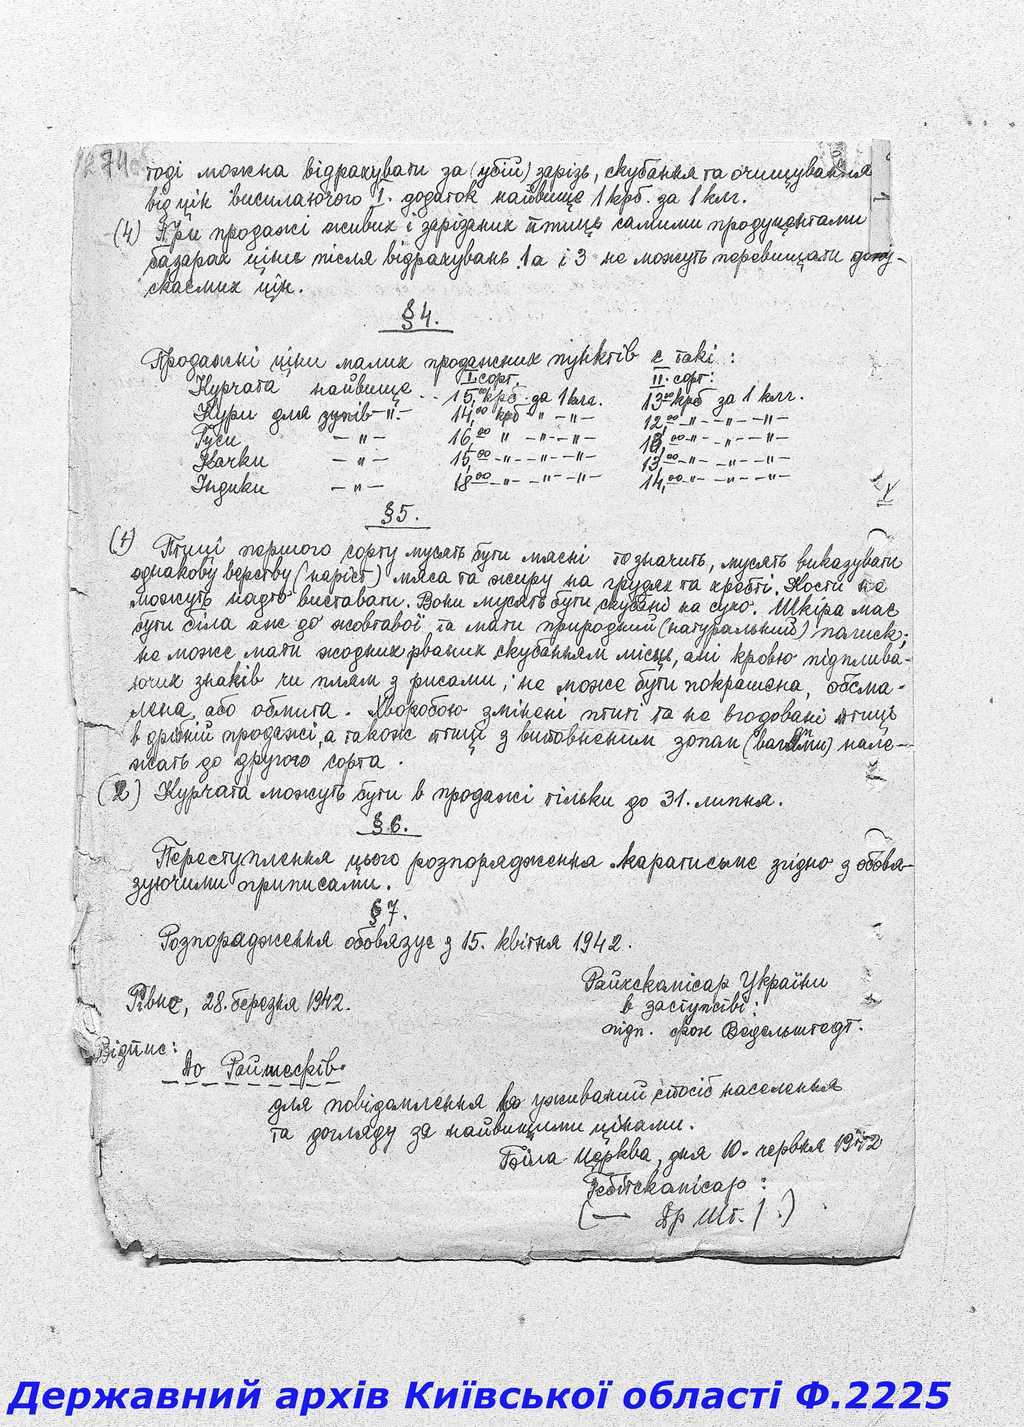 274
тоді можна відрахувати за (убій) заріз, скубання та очищування
від цін висилаючого I. додаток найвище 1 крб. за 1 клг.
(4) При продажі живих і зарізаних птиць самими продуцентами
базарах ціни після відрахувань 1а і 3 не можуть перевищати допу-
скаємих цін.
§ 4.
Продажні ціни малих продажних пунктів є такі :
I. сорт. II. сорт:
Курчата найвище .. 15,00 крб. за 1 клг. 13,00 крб за 1 клг.
Кури для зупів -"- 14,00 крб " -"- 12,00 -"- -"- -"-
Гуси -"- 16,00 " -"- -"- -"- -"- -"-
Качки -"- 15,00 -"- -"- -"- 13,00 -"- -"- -"-
Індики -"- 18,00 -"- -"- -"- 14,00 -"- -"- -"-
§ 5.
(1) Птиці першого сорту мусять бути мясні то значить, мусять виказувати
однакову верству (наріст) мяса та жиру на грудях та хребті. Кости не
можуть надто виставати. Вони мусять бути скубані на сухо. Шкіра має
бути біла аж до жовтавої та мати природний (натуральний) полиск;
не може мати жодних рваних скубанням місць, ані кровю підплива-
ючих знаків чи плям з рисами, не може бути покрашена, обсма-
лена, або обмита. Хворобою змінені птиці та не вгодовані птиць
в дрібній продажі, а також птиці з виповненим зопам (вагами) нале-
жать до другого сорта .
(2) Курчата можуть бути в продажі тільки до 31. липня.
§ 6.
Переступлення цього розпорядження каратиметься згідно з обовя-
зуючими приписами.
§ 7.
Розпорадження обовязує з 15. квітня 1942.
Рівне, 28. березня 1942.
Райхскомісар України
в заступстві:
підп. фон Ведельштедт.
Відпис:
До Райшефів.
для повідомлення в уживаний спосіб населення
та догляду за найвищими цінами.
Біла Церква, дня 10. червня 1942
Гебітскомісар :
( — Др Шт. / . )
Державний архів Київської області Ф.2225